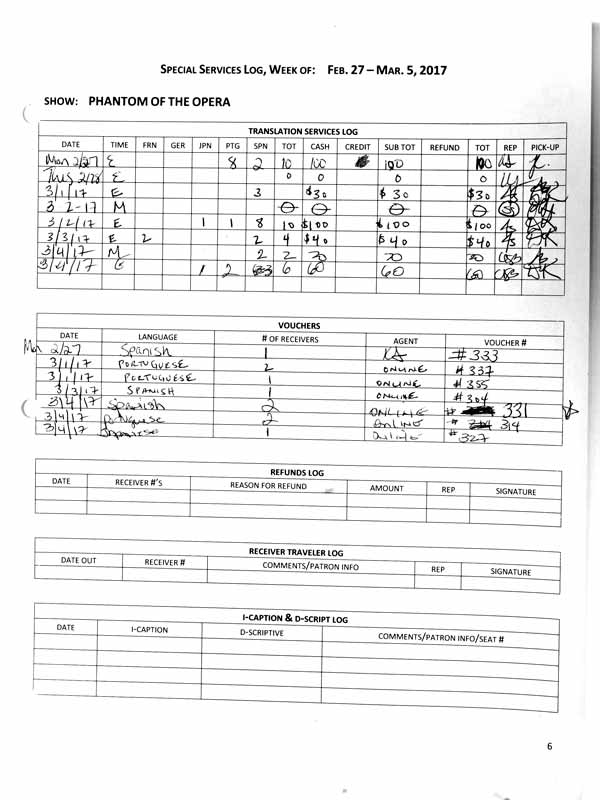 SPECIAL SERVICES LOG, WEEK OF: FEB. 27 – MAR. 5, 2017
SHOW: PHANTOM OF THE OPERA
TRANSLATION SERVICES LOG
DATE TIME FRN GER JPN PTG SPN TOT CASH CREDIT SUB TOT REFUND TOT REP PICK-UP
Mon 2/27 E 8 2 10 100 100 100 KA
2/28 E 0 0 0 0
3/1/17 E 3 $30 $30 $30
3 2-17 M 0 0 0 0
3/2/17 E 1 1 8 10 $100 $100 $100
3/3/17 E 2 2 4 $40 $40 $40
3/4/17 M 2 2 20 20 20
3/4/17 E 1 2 3 6 60 60 60
VOUCHERS
DATE LANGUAGE # OF RECEIVERS AGENT VOUCHER #
Mon 2/27 Spanish 1 KA #333
3/1/17 PORTUGUESE 2 ONLINE #337
3/1/17 PORTUGUESE 1 ONLINE #355
3/3/17 SPANISH 1 ONLINE #304
3/4/17 Spanish 2 ONLINE # 331
3/4/17 Portuguese 2 Online # 314
3/4/17 Japanese 1 Online # 327
REFUNDS LOG
DATE RECEIVER #'S REASON FOR REFUND AMOUNT REP SIGNATURE
RECEIVER TRAVELER LOG
DATE OUT RECEIVER # COMMENTS/PATRON INFO REP SIGNATURE
I-CAPTION & D-SCRIPT LOG
DATE I-CAPTION D-SCRIPTIVE COMMENTS/PATRON INFO/SEAT #
6